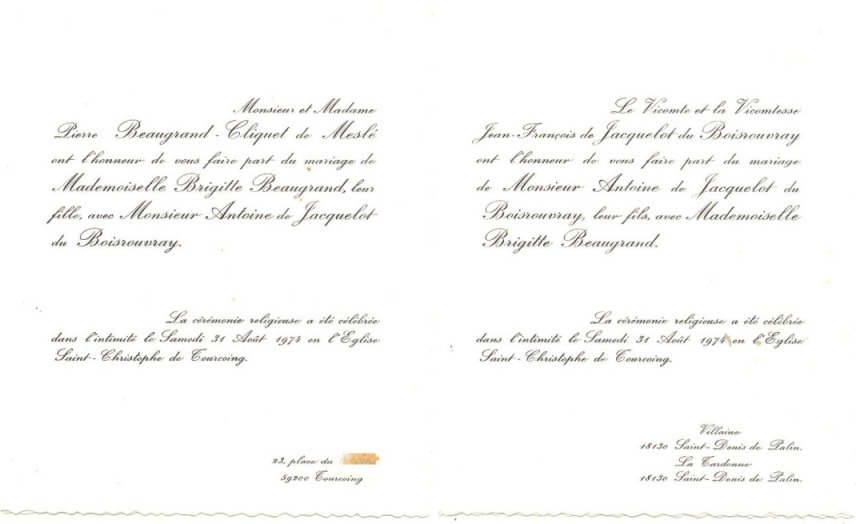 Monsieur et Madame
Pierre Beaugrand-Cliquet de Meslé
ont l'honneur de vous faire part du mariage de
Mademoiselle Brigitte Beaugrand, leur
fille, avec Monsieur Antoine de Jacquelot
du Boisrouvray.
La cérémonie religieuse a été célébrée
dans l'intimité le Samedi 31 Août 1974 en l'Eglise
Saint-Christophe de Tourcoing.
23, place du
59200 Tourcoing
Le Vicomte et la Vicomtesse
Jean-François de Jacquelot du Boisrouvray
ont l'honneur de vous faire part du mariage
de Monsieur Antoine de Jacquelot du
Boisrouvray, leur fils, avec Mademoiselle
Brigitte Beaugrand.
La cérémonie religieuse a été célébrée
dans l'intimité le Samedi 31 Août 1974 en l'Eglise
Saint-Christophe de Tourcoing.
Villaine
18130 Saint-Denis de Palin.
La Tardonne
18130 Saint-Denis de Palin.